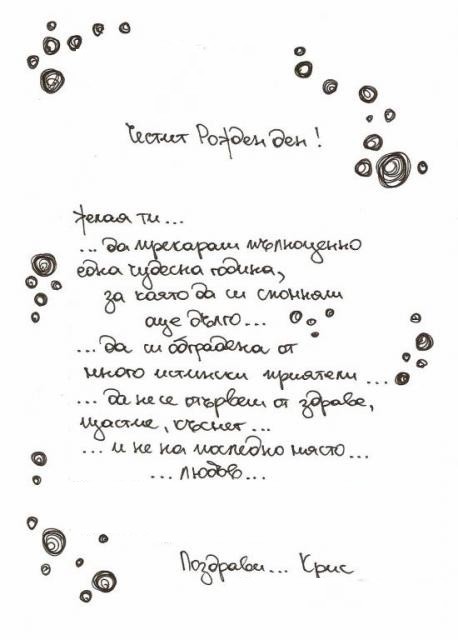 Честит Рожден ден!
Желая ти...
... да прекараш пълноценно
една чудесна година,
за която да си спомняш
още дълго...
... да си обградена от
много истински приятели ...
... да не се отървеш от здраве,
щастие, късмет ...
... и не на последно място...
... любов...
Поздрави... Крис